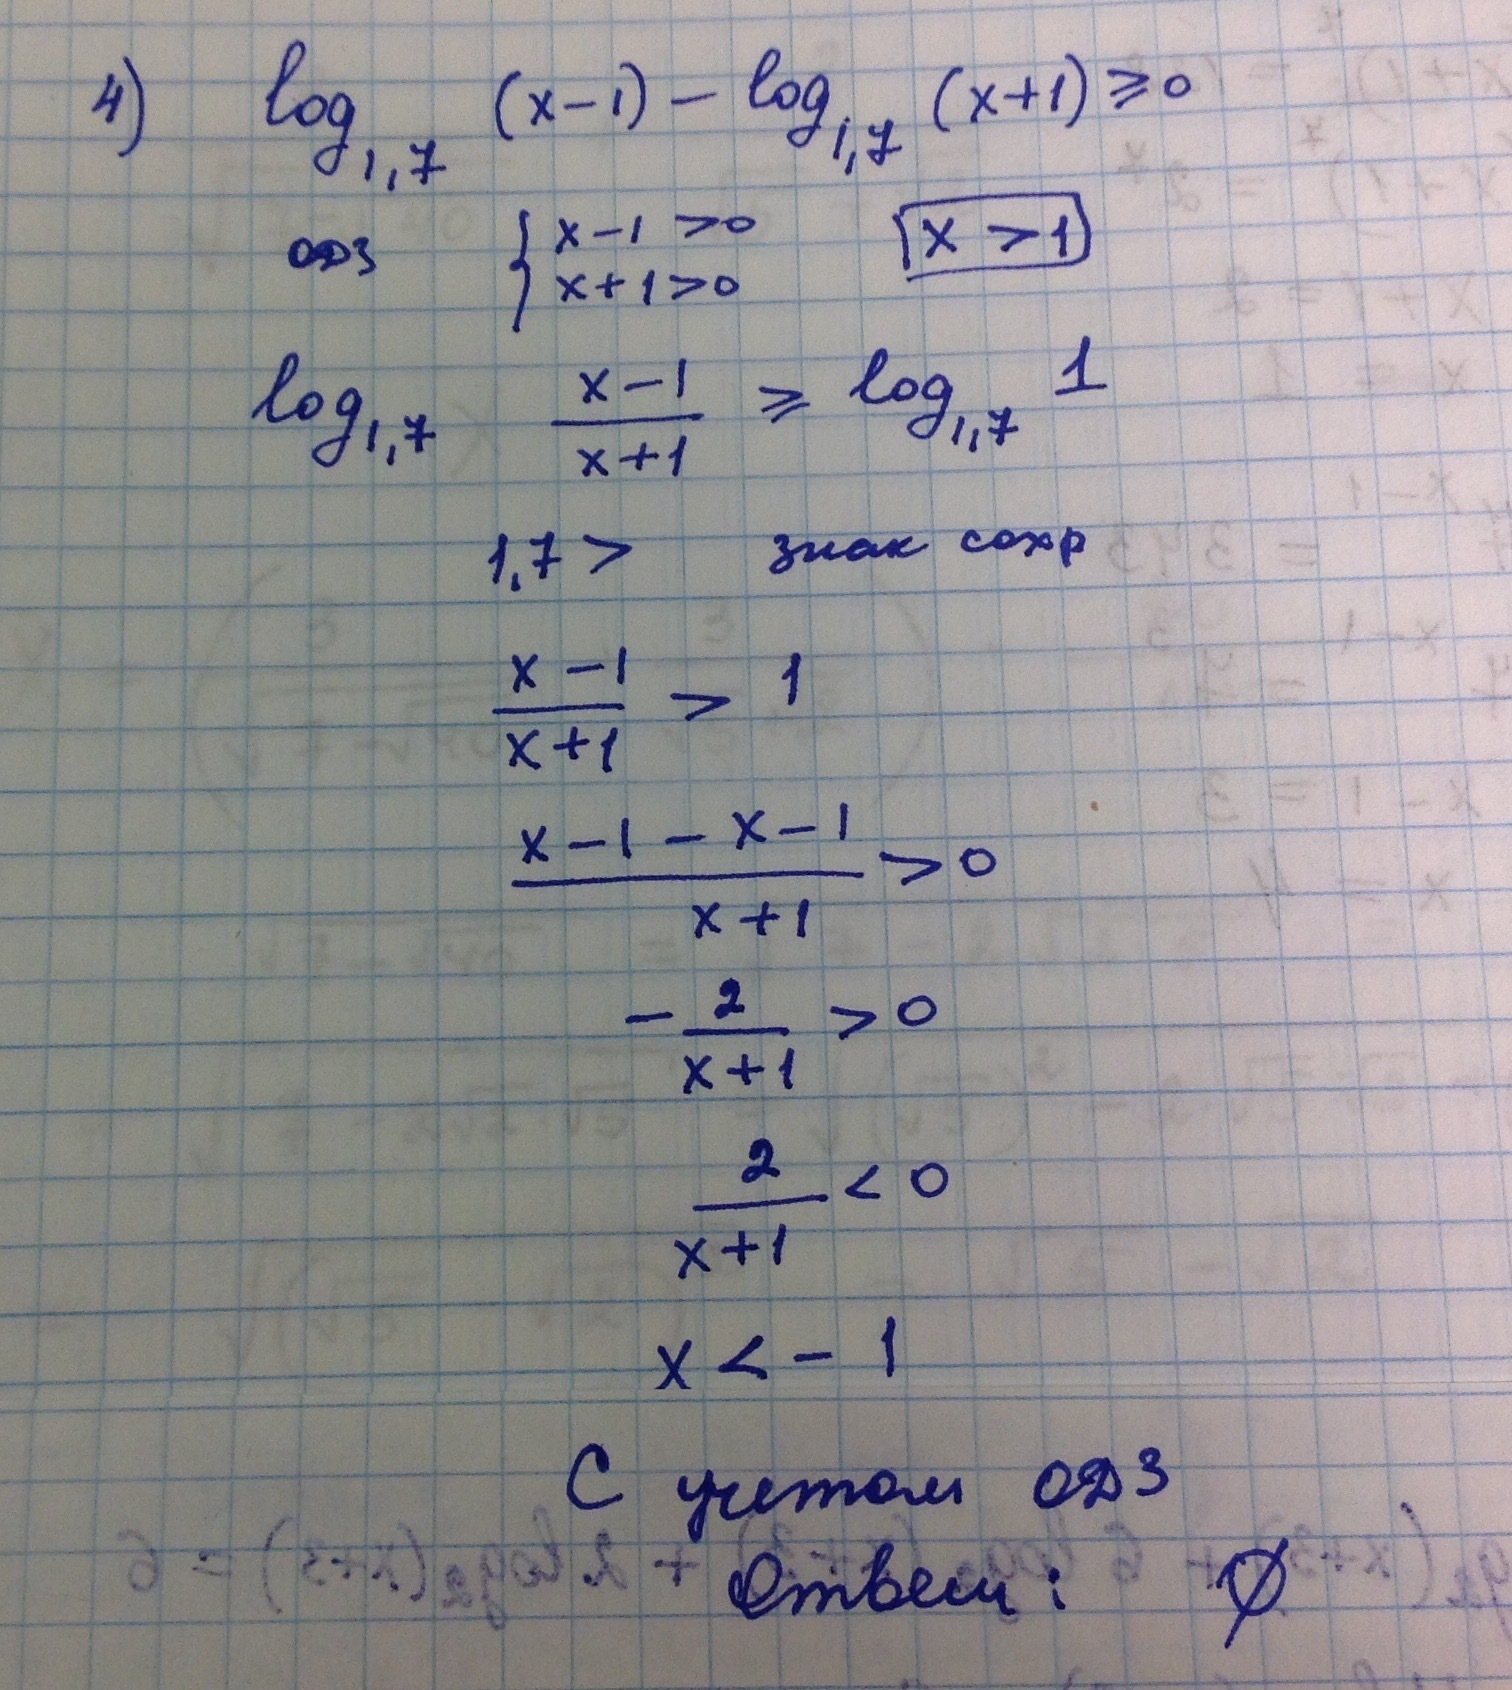 4) log₁,₇ (x-1) - log₁,₇ (x+1) ≥ 0
ОДЗ { x-1 > 0 x > 1
x+1 > 0
log₁,₇ (x-1)/(x+1) ≥ log₁,₇ 1
1,7 > знак сохр
(x-1)/(x+1) > 1
(x-1-x-1)/(x+1) > 0
- 2/(x+1) > 0
2/(x+1) < 0
x < -1
С учетом ОДЗ
Ответ: ∅